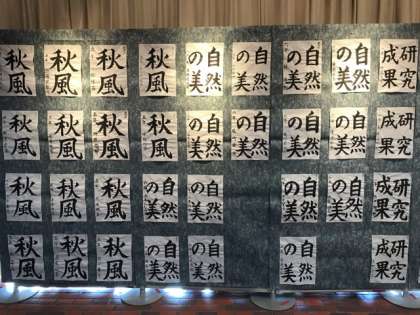 秋風
秋風
秋風
秋風
自然
の美
自然
の美
自然
の美
自然
の美
研究
成果
秋風
秋風
秋風
秋風
自然
の美
自然
の美
自然
の美
自然
の美
研究
成果
秋風
秋風
秋風
自然
の美
自然
の美
自然
の美
自然
の美
研究
成果
秋風
秋風
秋風
自然
の美
自然
の美
自然
の美
研究
成果